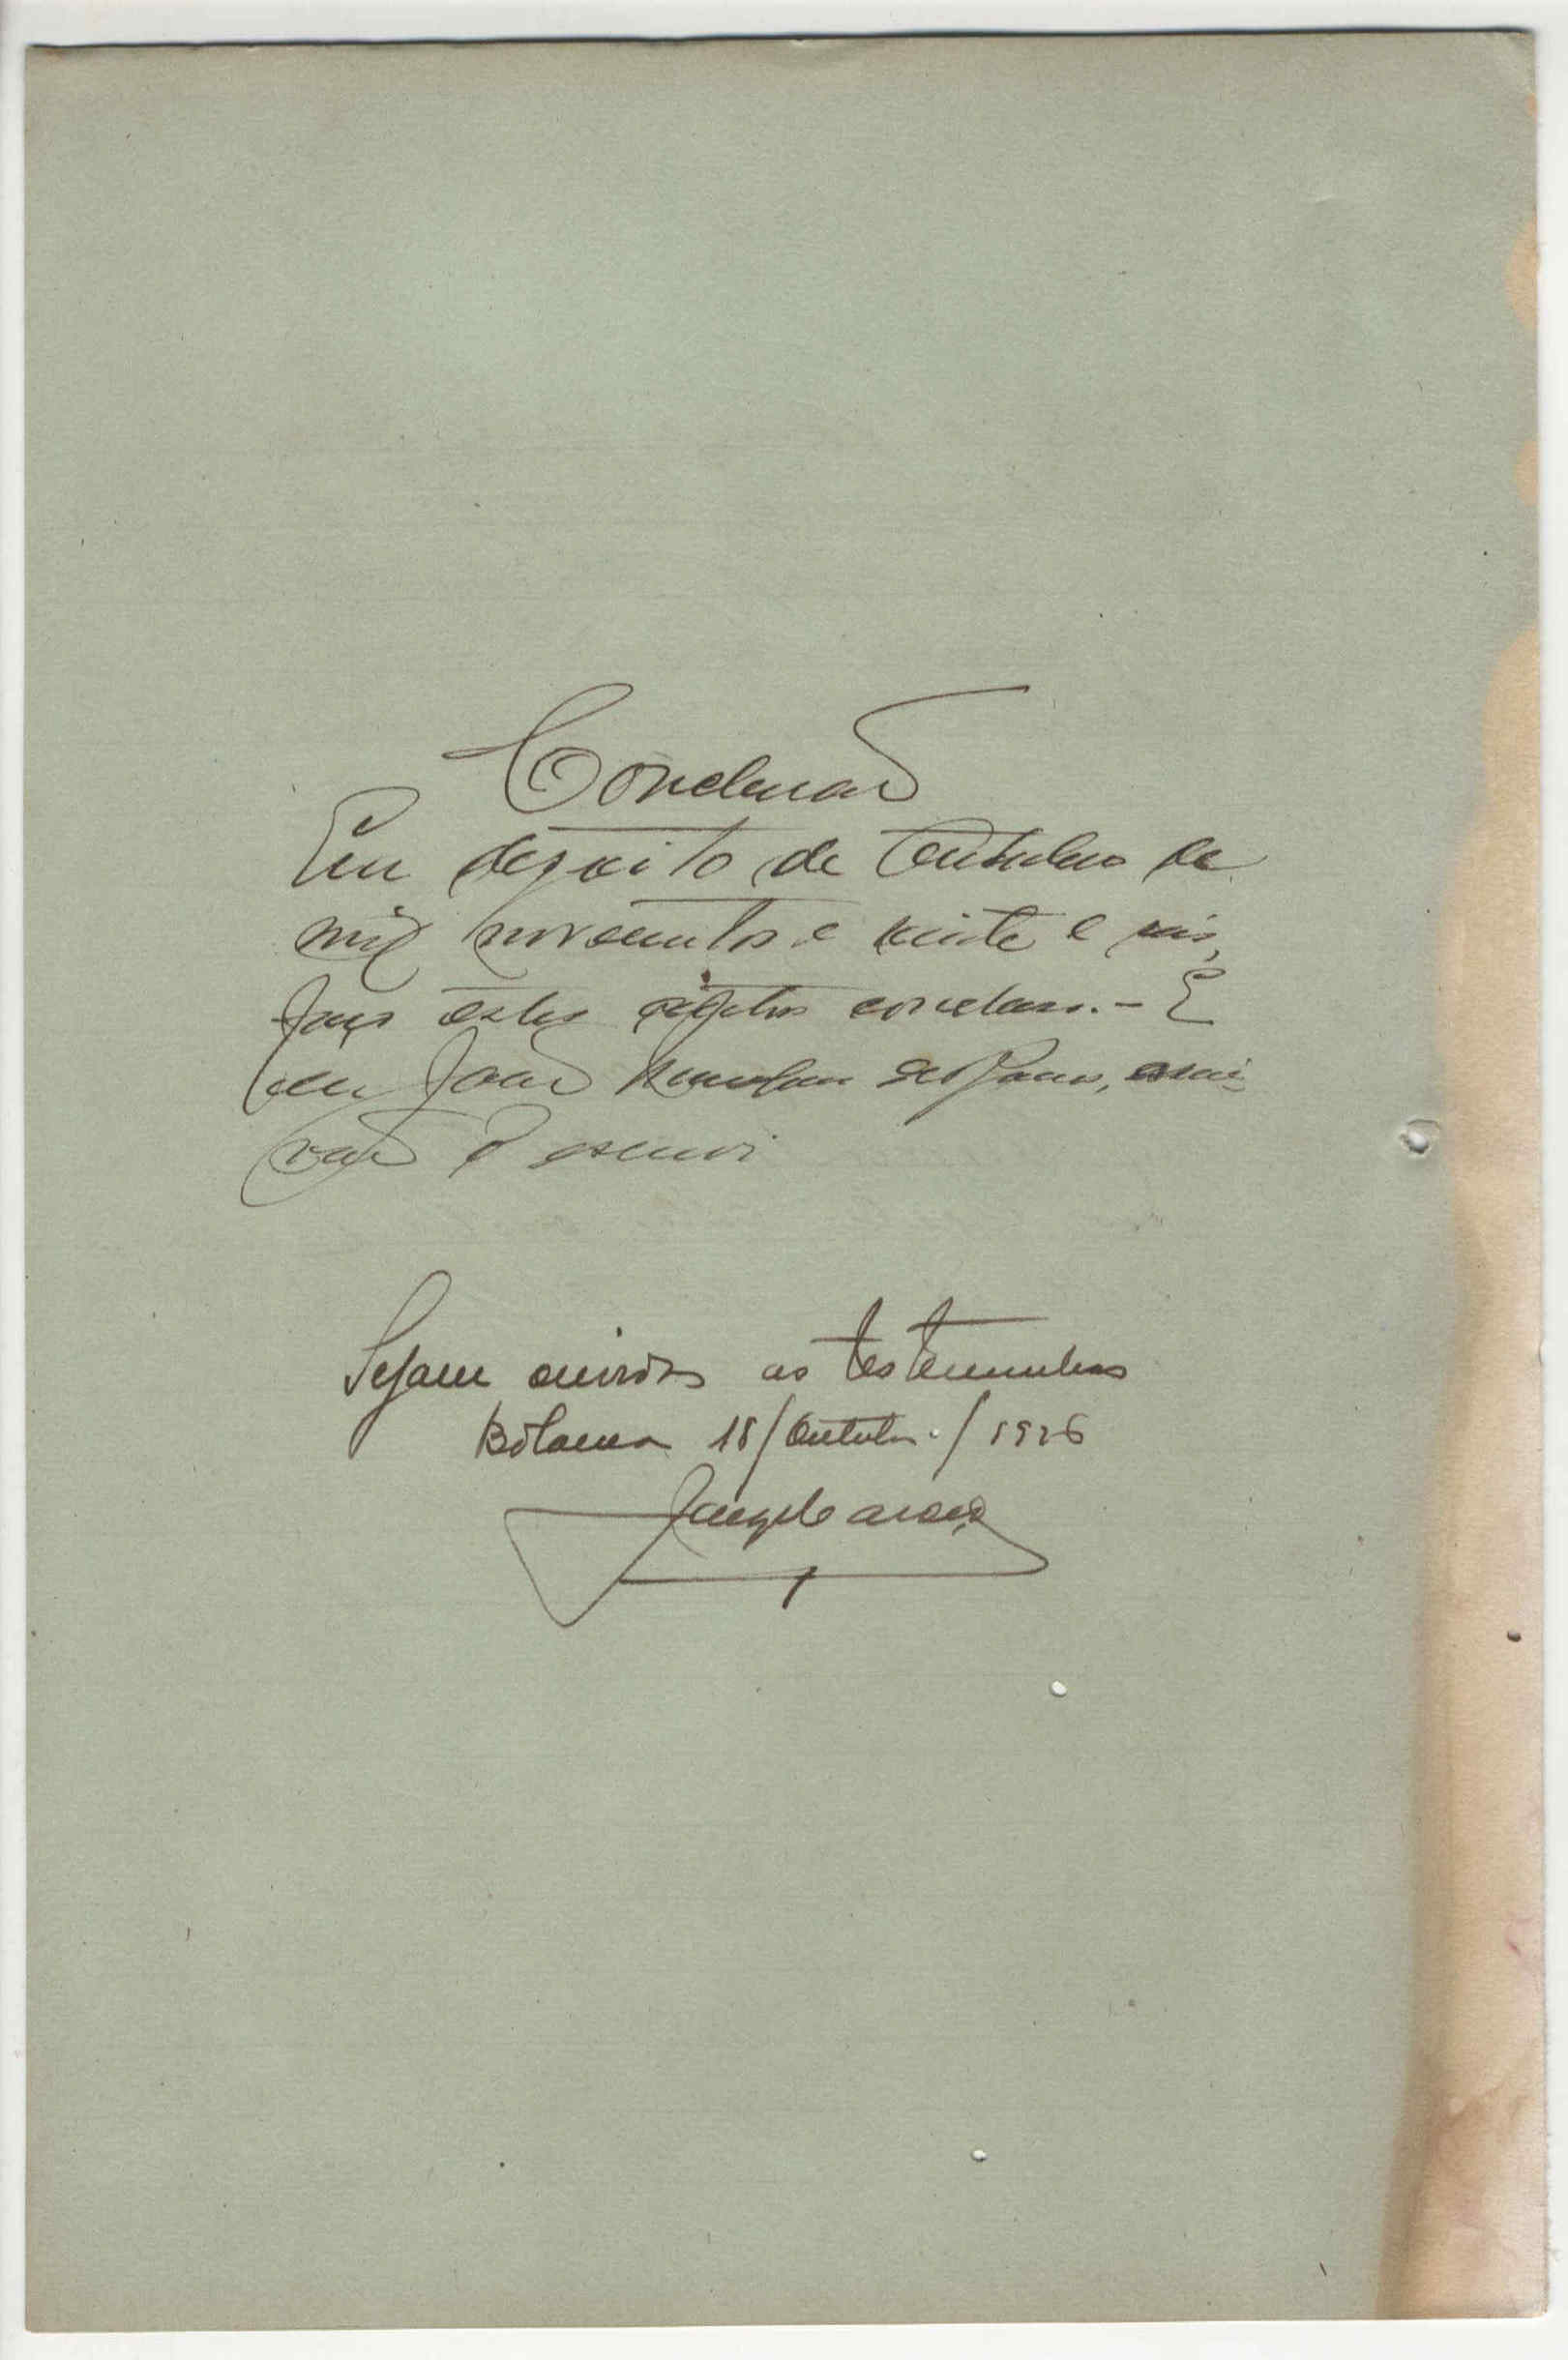 Conclusão
Em desoito de Outubro de
mil novecentos e vinte e seis,
faço estes autos conclusos. - E
eu João, escri-
vão o escrevi
Sejam ouvidas as testemunhas
Bolama 18/Outubro./1926